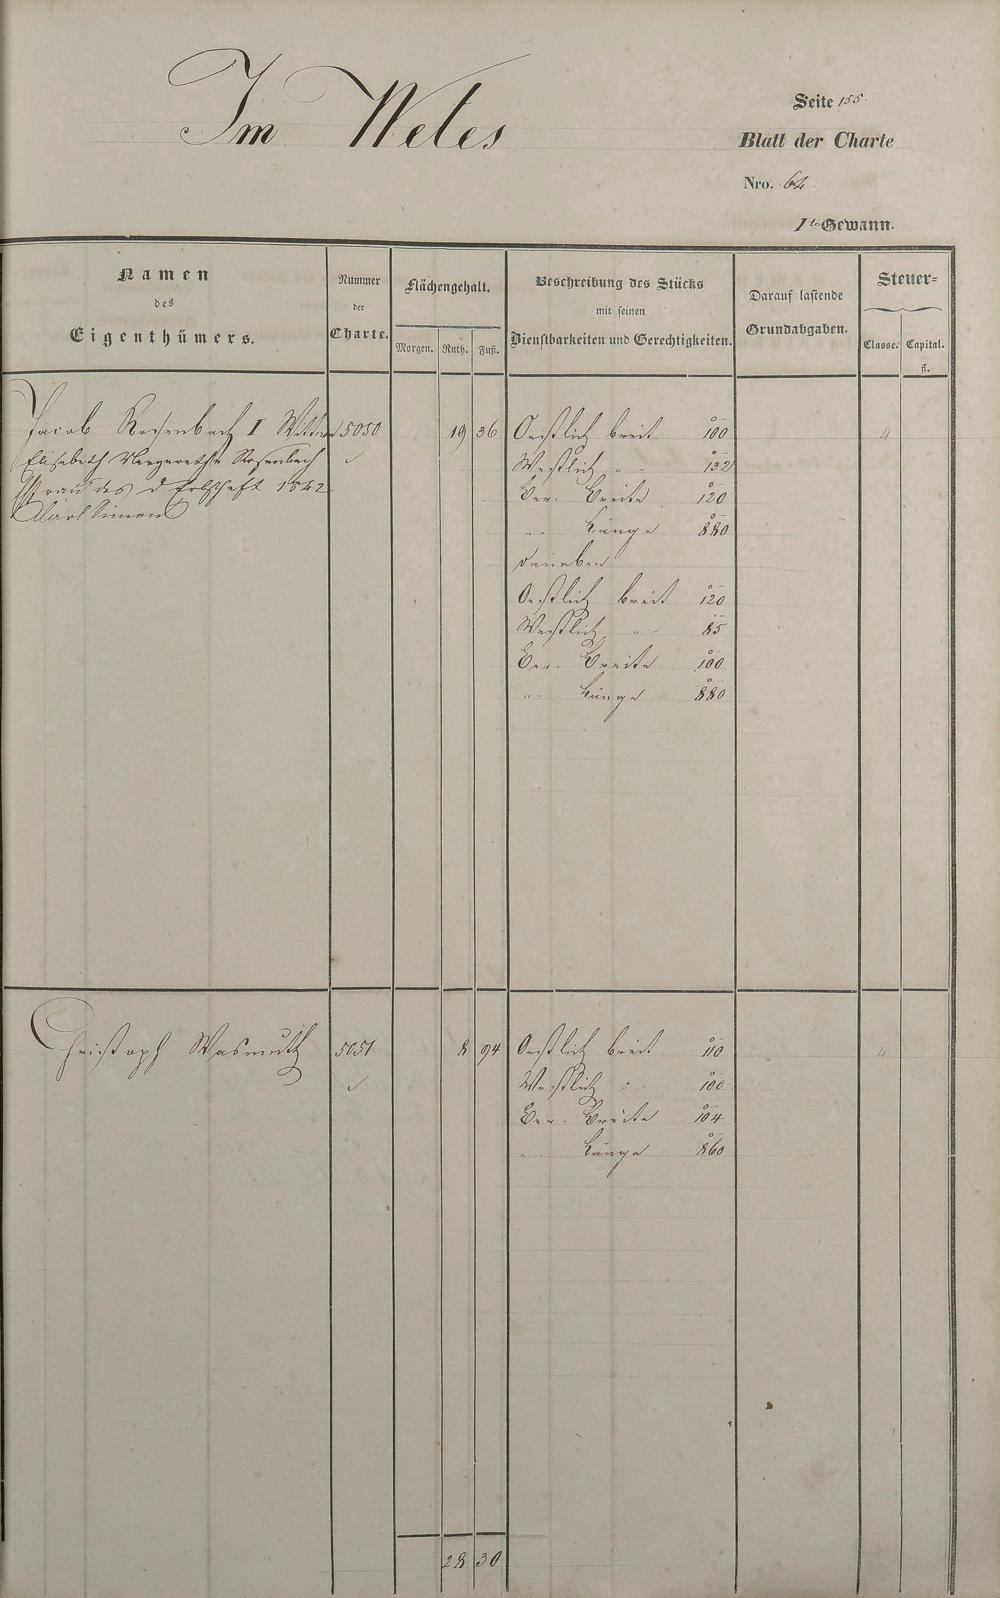 Im Weles
Seite 155
Blatt der Charte
Nro. 64
1te Gewann.
Namen
des
Eigenthümers.
Nummer
der
Charte.
Flächengehalt.
Morgen. Ruth. Fuß.
Beschreibung des Stücks
mit seinen
Dienstbarkeiten und Gerechtigkeiten.
Darauf lastende
Grundabgaben.
Steuer=
Classe. Capital.
fl.
Jacob Rosenbach I Wittwe 5050 19 36 Oestlich breit 100 4
Elisabeth Margarethe Rosenbach
des Erbschaft 1842
Carl Simon
Westlich „ - 132
Ber. Breite 120
„ Länge 880
daneben
Oestlich breit 120
Westlich „ - 85
Ber. Breite 100
„ Länge 880
Christoph Wasmuth 5051 8 94 Oestlich breit 110 4
Westlich „ - 100
Ber. Breite 104
„ Länge 860
28 30